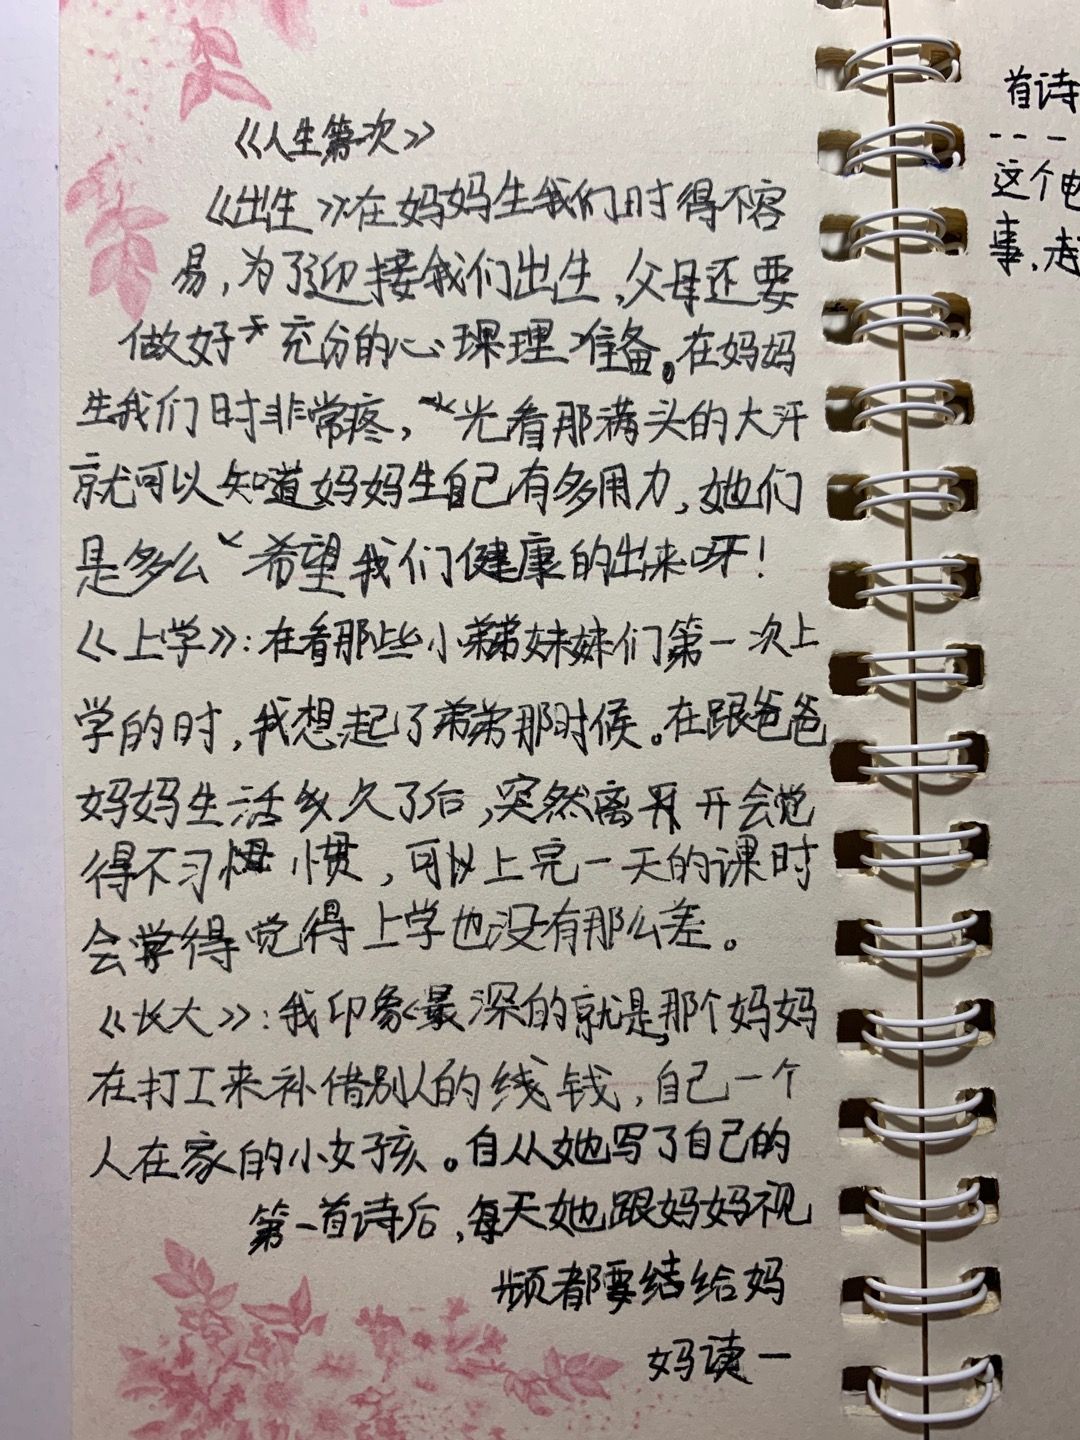 《人生第一次》
《出生》：在妈妈生我们时得不容
易，为了迎接我们出生，父母还要
做好充分的心理准备。在妈妈
生我们时非常疼，光看那满头的大汗
就可以知道妈妈生自己有多用力，她们
是多么希望我们健康的出来呀！
《上学》：在看那些小弟弟妹妹们第一次上
学的时，我想起了弟弟那时候。在跟爸爸
妈妈生活多久了后，突然离开会觉
得不习惯，可以上完一天的课时
会觉得上学也没有那么差。
《长大》：我印象最深的就是，那个妈妈
在打工来补借别人的钱，自己一个
人在家的小女孩。自从她写了自己的
第一首诗后，每天她跟妈妈视
频都要给妈
妈读一
首诗
这个电
事，走